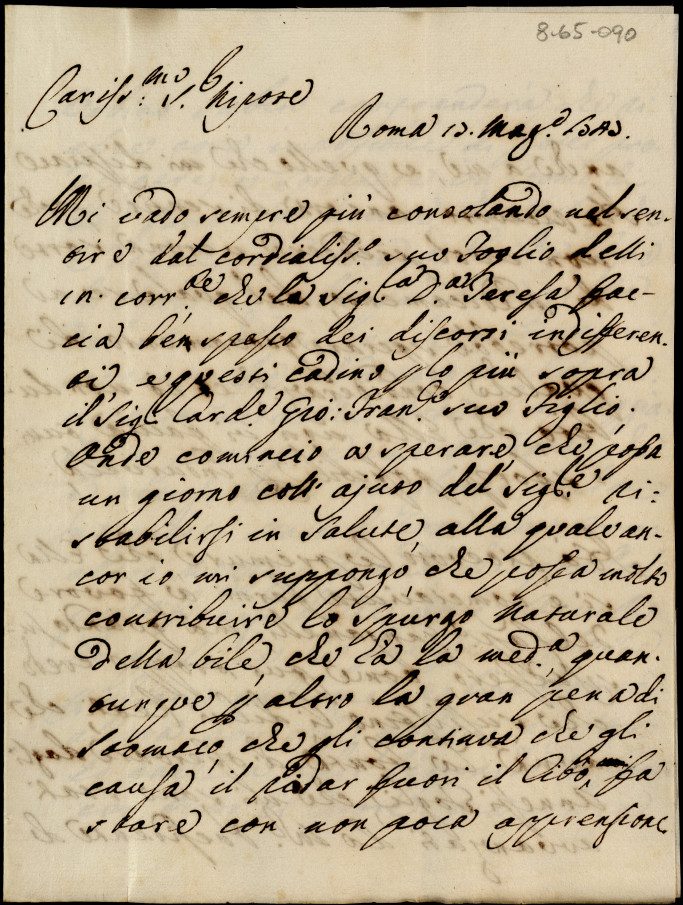 8-65-090
Cariss.mo S.r Nipote
Roma 13. Mag.o
Mi vado sempre più consolando nel sen-
tire dal cordialiss.o suo Foglio delli
in corr.te che la Sig.ra D.a Teresa fac-
cia ben spesso dei discorsi indifferen-
ti e questi cadino p lo più sopra
il Sig.r Card.e Gio: Fran.co suo Figlio.
Onde comincio a sperare, che possa
un giorno coll'ajuto del Sig.re ri-
stabilirsi in salute, alla quale an-
cor io mi suppongo, che possa molto
contribuire lo spurgo naturale
della bile, che fà la med.a, quan-
tunque p altro la gran pena di
stomaco, che gli continua che gli
causa il ridar fuori il Cibo, mi fa
stare con non poca apprensione